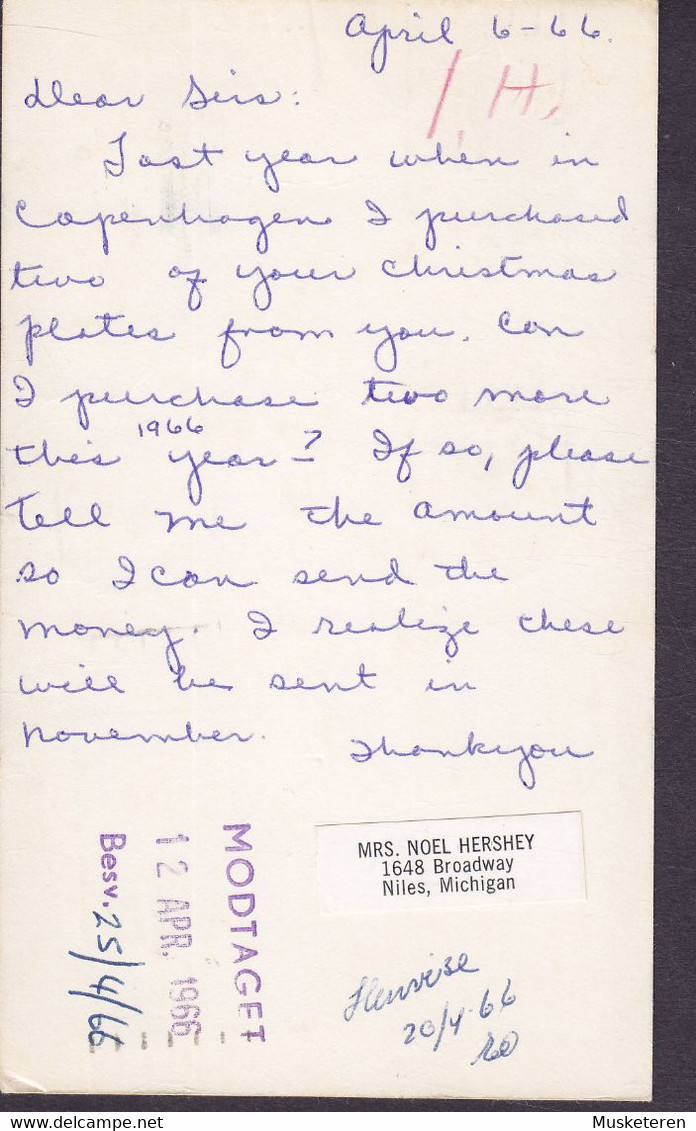 April 6-66.
1 H.
Dear Sirs:
Last year when in
Copenhagen I purchased
two of your Christmas
plates from you. Can
I purchase two more
this 1966 year? If so, please
tell me the amount
so I can send the
money. I realize these
will be sent in
November.
Thankyou
MRS. NOEL HERSHEY
1648 Broadway
Niles, Michigan
MODTAGET
12 APR. 1966
Besv. 25/4/66
Henvise
20/4-66
Musketeren